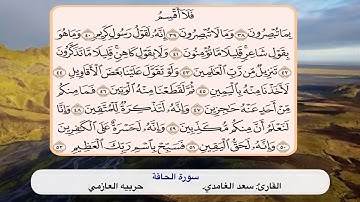 فَلَآ أُقْسِمُ
بِمَا تُبْصِرُونَ ٣٨ وَمَا لَا تُبْصِرُونَ ٣٩ إِنَّهُۥ لَقَوْلُ رَسُولٍ كَرِيمٍ ٤٠ وَمَا هُوَ
بِقَوْلِ شَاعِرٍ قَلِيلًا مَّا تُؤْمِنُونَ ٤١ وَلَا بِقَوْلِ كَاهِنٍ قَلِيلًا مَّا تَذَكَّرُونَ
٤٢ تَنزِيلٌ مِّن رَّبِّ ٱلْعَٰلَمِينَ ٤٣ وَلَوْ تَقَوَّلَ عَلَيْنَا بَعْضَ ٱلْأَقَاوِيلِ ٤٤
لَأَخَذْنَا مِنْهُ بِٱلْيَمِينِ ٤٥ ثُمَّ لَقَطَعْنَا مِنْهُ ٱلْوَتِينَ ٤٦ فَمَا مِنكُم
مِّنْ أَحَدٍ عَنْهُ حَٰجِزِينَ ٤٧ وَإِنَّهُۥ لَتَذْكِرَةٌ لِّلْمُتَّقِينَ ٤٨ وَإِنَّا
لَنَعْلَمُ أَنَّ مِنكُم مُّكَذِّبِينَ ٤٩ وَإِنَّهُۥ لَحَسْرَةٌ عَلَى ٱلْكَٰفِرِينَ
٥٠ وَإِنَّهُۥ لَحَقُّ ٱلْيَقِينِ ٥١ فَسَبِّحْ بِٱسْمِ رَبِّكَ ٱلْعَظِيمِ ٥٢
سورة الحاقة
القارئ: سعد الغامدي. حربيه العازمي